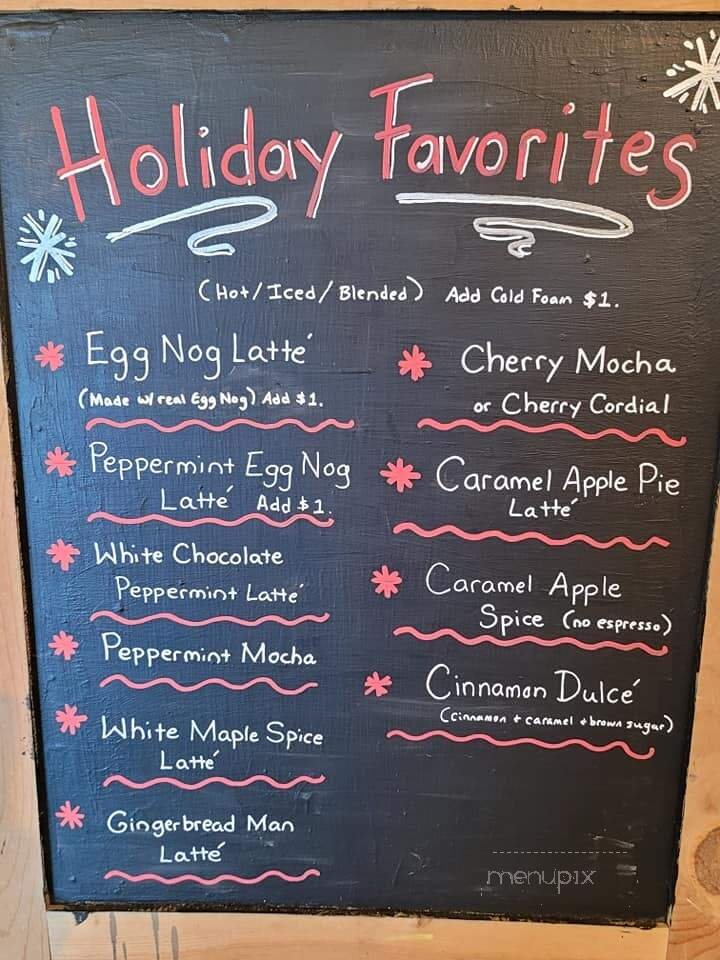 Holiday Favorites
(Hot/Iced/Blended) Add Cold Foam $1.
Egg Nog Latté
(Made w/ real Egg Nog) Add $1.
Peppermint Egg Nog
Latté Add $1.
White Chocolate
Peppermint Latté
Peppermint Mocha
White Maple Spice
Latté
Gingerbread Man
Latté
Cherry Mocha
or Cherry Cordial
Caramel Apple Pie
Latté
Caramel Apple
Spice (no espresso)
Cinnamon Dulcé
(cinnamon + caramel + brown sugar)
menupix